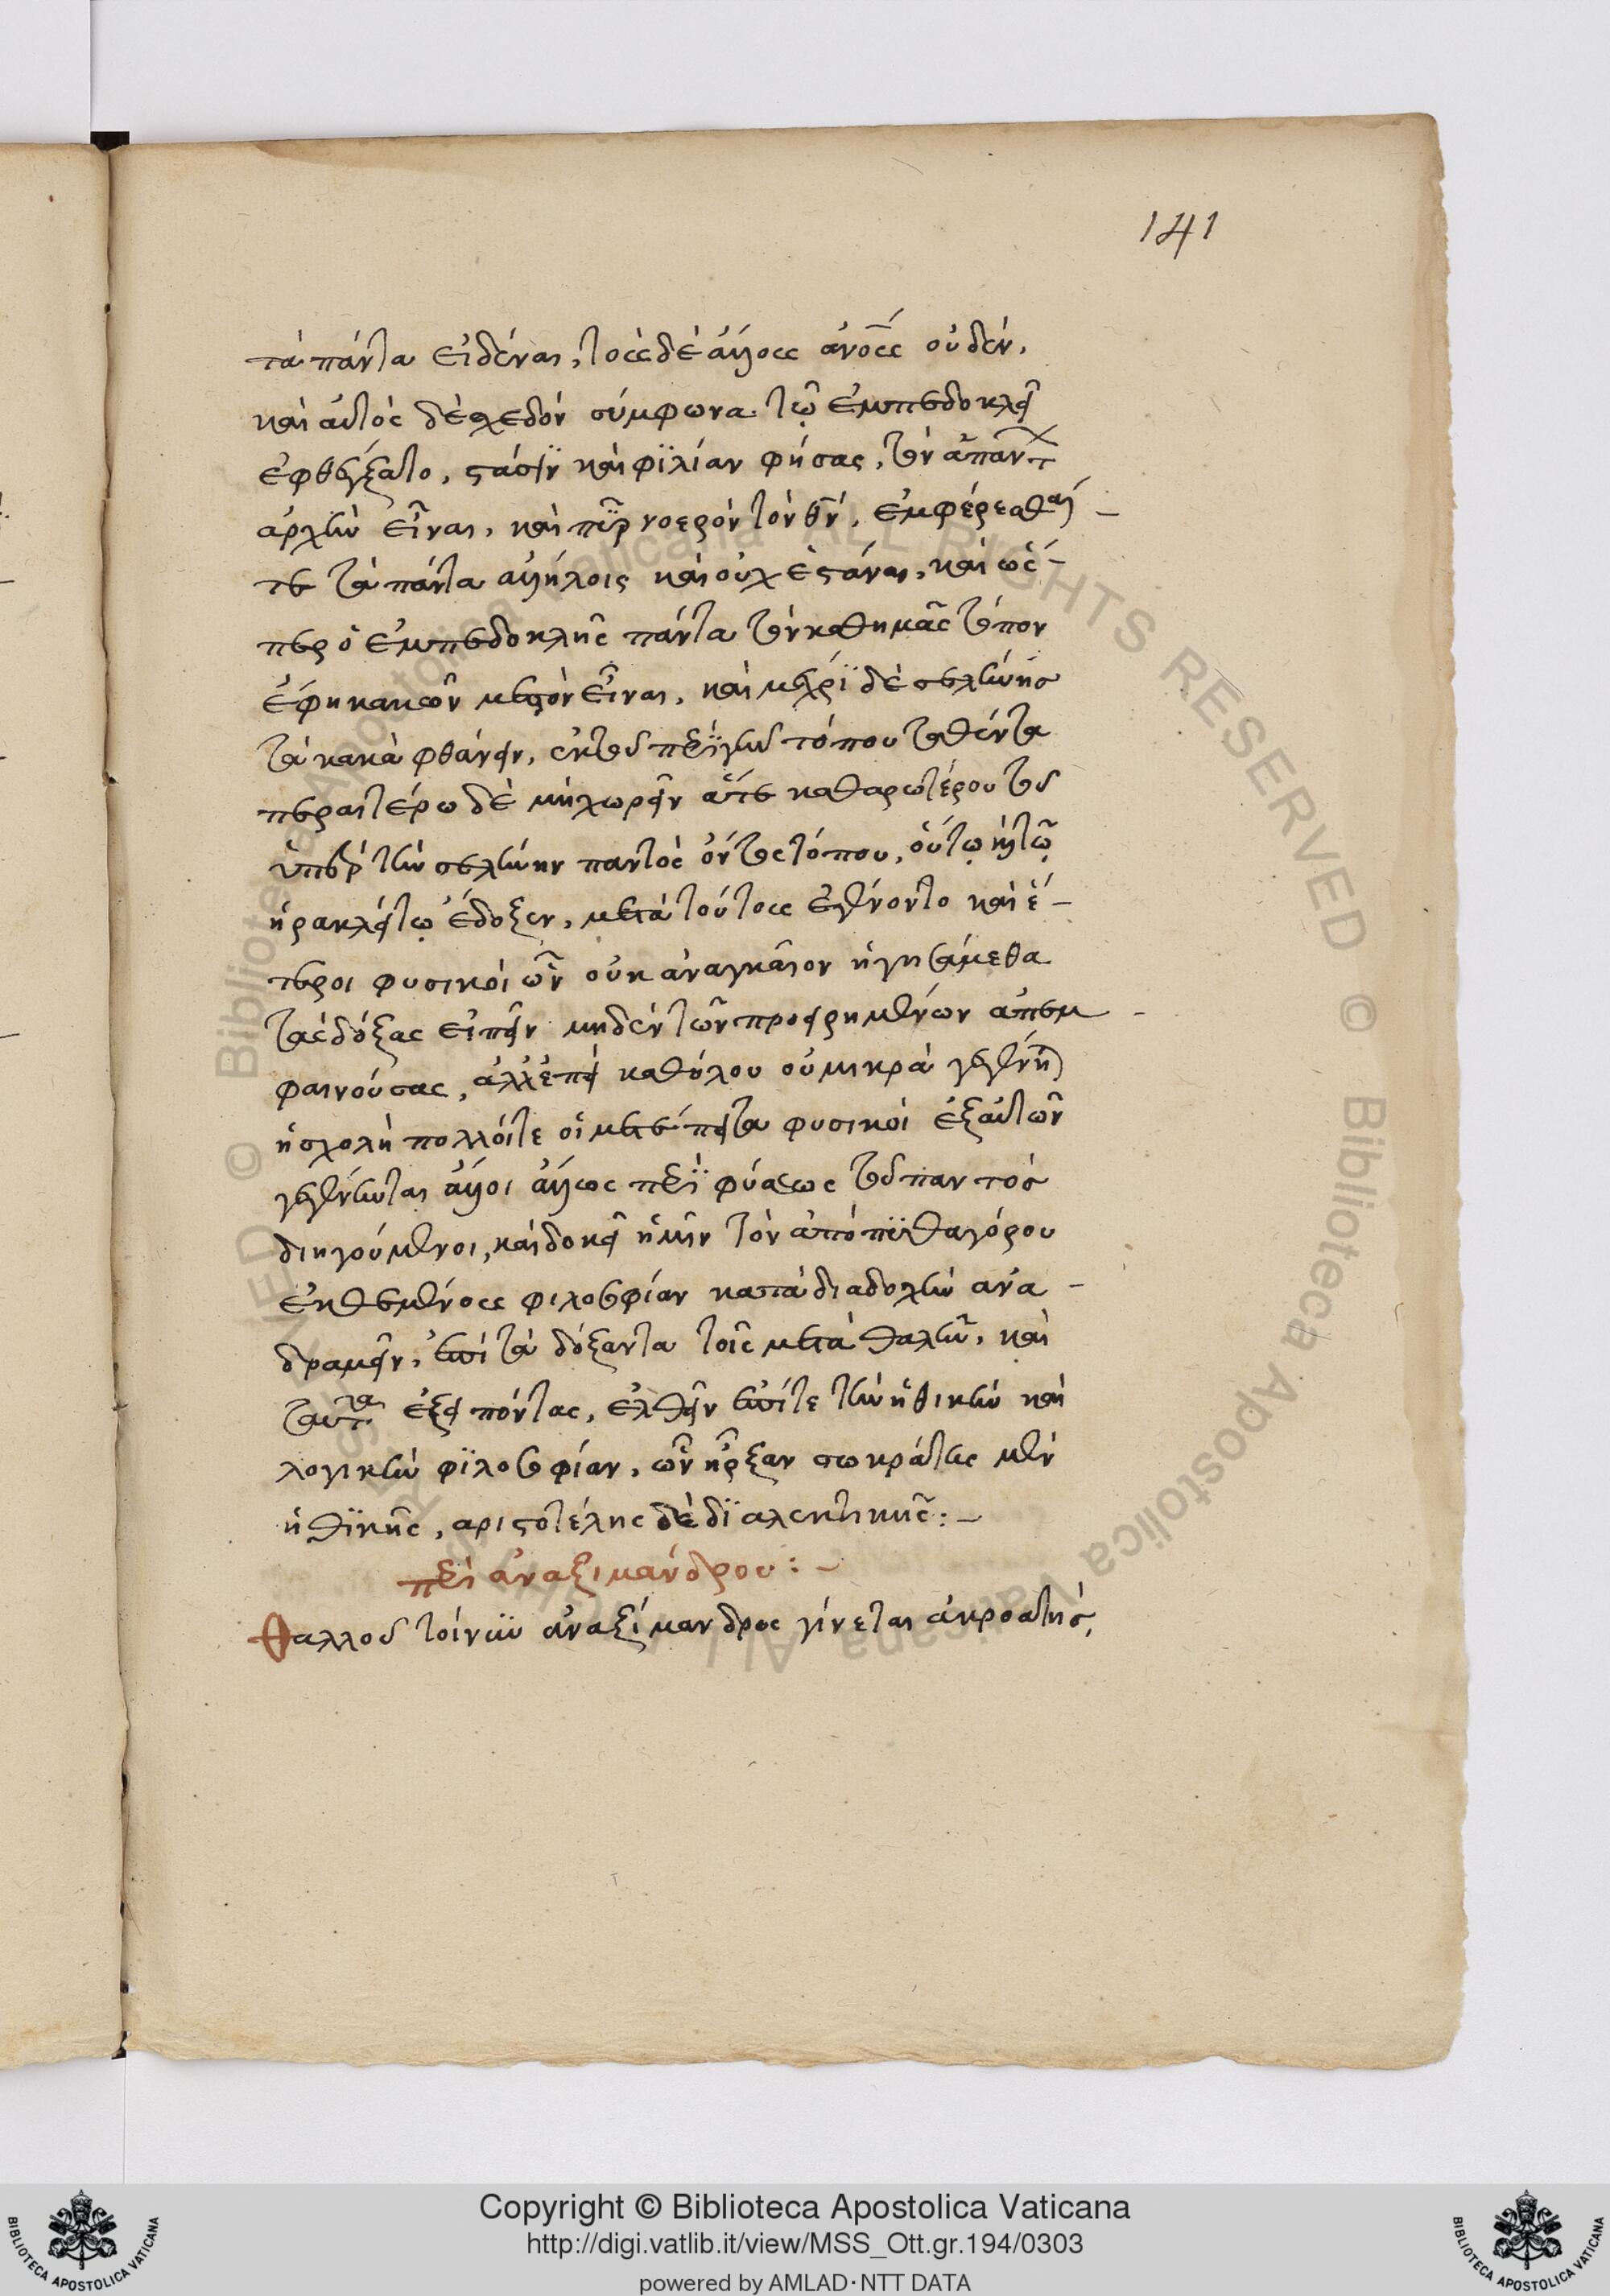 141
τὰ πάντα εἰδέναι, τοὺς δὲ ἄλλους ἀν̅ο̅υ̅ς οὐδέν,
καὶ αὐτὸς δὲ σχεδὸν σύμφωνα τῷ ἐμπεδοκλεῖ
ἐφθέγξατο, στάσϊν καὶ φϊλίαν φήσας, τῶν ἁπάντων
ἀρχὴν εἶναι, καὶ πῦρ νοερὸν τὸν θ̅ν̅, ἐμφέρεσθαί
τε τὰ πάντα ἀλλήλοις καὶ οὐχ ἑστάναι, καὶ ὥσ-
περ ὁ ἐμπεδοκλῆς πάντα τὸν καθημᾶς τόπον
ἔφη κακῶν μεστὸν εἶναι, καὶ μέχρϊ δὲ σελήνης
τὰ κακὰ φθάνειν, ἐκ τοῦ περϊγῆν τόπου ταθέντα
περαιτέρω δὲ μὴ χωρεῖν ἅτε καθαρωτέρου τοῦ
ὑπὲρ τὴν σελήνην παντὸς ὄντος τόπου, οὕτω καὶ τῷ
ἡρακλείτῳ ἔδοξεν, μετὰ τούτους ἐγένοντο καὶ ἕ-
τεροι φυσικοὶ ὧν οὐκ ἀναγκαῖον ἡγησάμεθα
τὰς δόξας εἰπεῖν μηδὲν τῶν προειρημένων ἀπεμ
φαινούσας, ἀλλ' ἐπεὶ καθόλου οὐ μικρὰ γεγένηται
ἡ σχολὴ πολλοί τε οἱ μετέπειτα φυσικοὶ ἐξ αὐτῶν
γεγένηνται ἄλλοι ἄλλως περὶ φύσεως τοῦ παντὸς
διηγούμενοι, καὶ δοκεῖ ἡμῖν τὸν ἀπὸ πϋθαγόρου
ἐκθεμένους φιλοσοφίαν κατὰ διαδοχὴν ἀνα-
δραμεῖν, ἐπὶ τὰ δόξαντα τοῖς μετὰ θαλῆν, καὶ
ταῦτα ἐξειπόντας, ἐλθεῖν ἐπί τε τὴν ἠθικὴν καὶ
λογικὴν φϊλοσοφίαν, ὧν ἦρξαν σωκράτης μὲν
ἠθϊκῆς, αριστοτέλης δὲ δϊαλεκτικῆς:-
περὶ ἀναξιμάνδρου:-
Θαλλοῦ τοίνυν ἀναξίμανδρος γίνεται ἀκροατής,
Copyright © Biblioteca Apostolica Vaticana
http://digi.vatlib.it/view/MSS_Ott.gr.194/0303
powered by AMLAD·NTT DATA